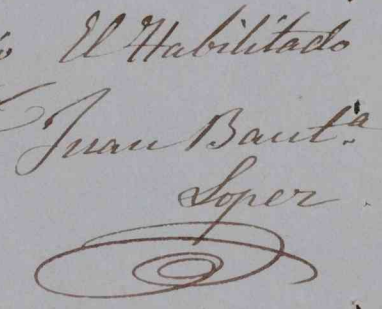 El Habilitado
Juan Baut.a
Lopez